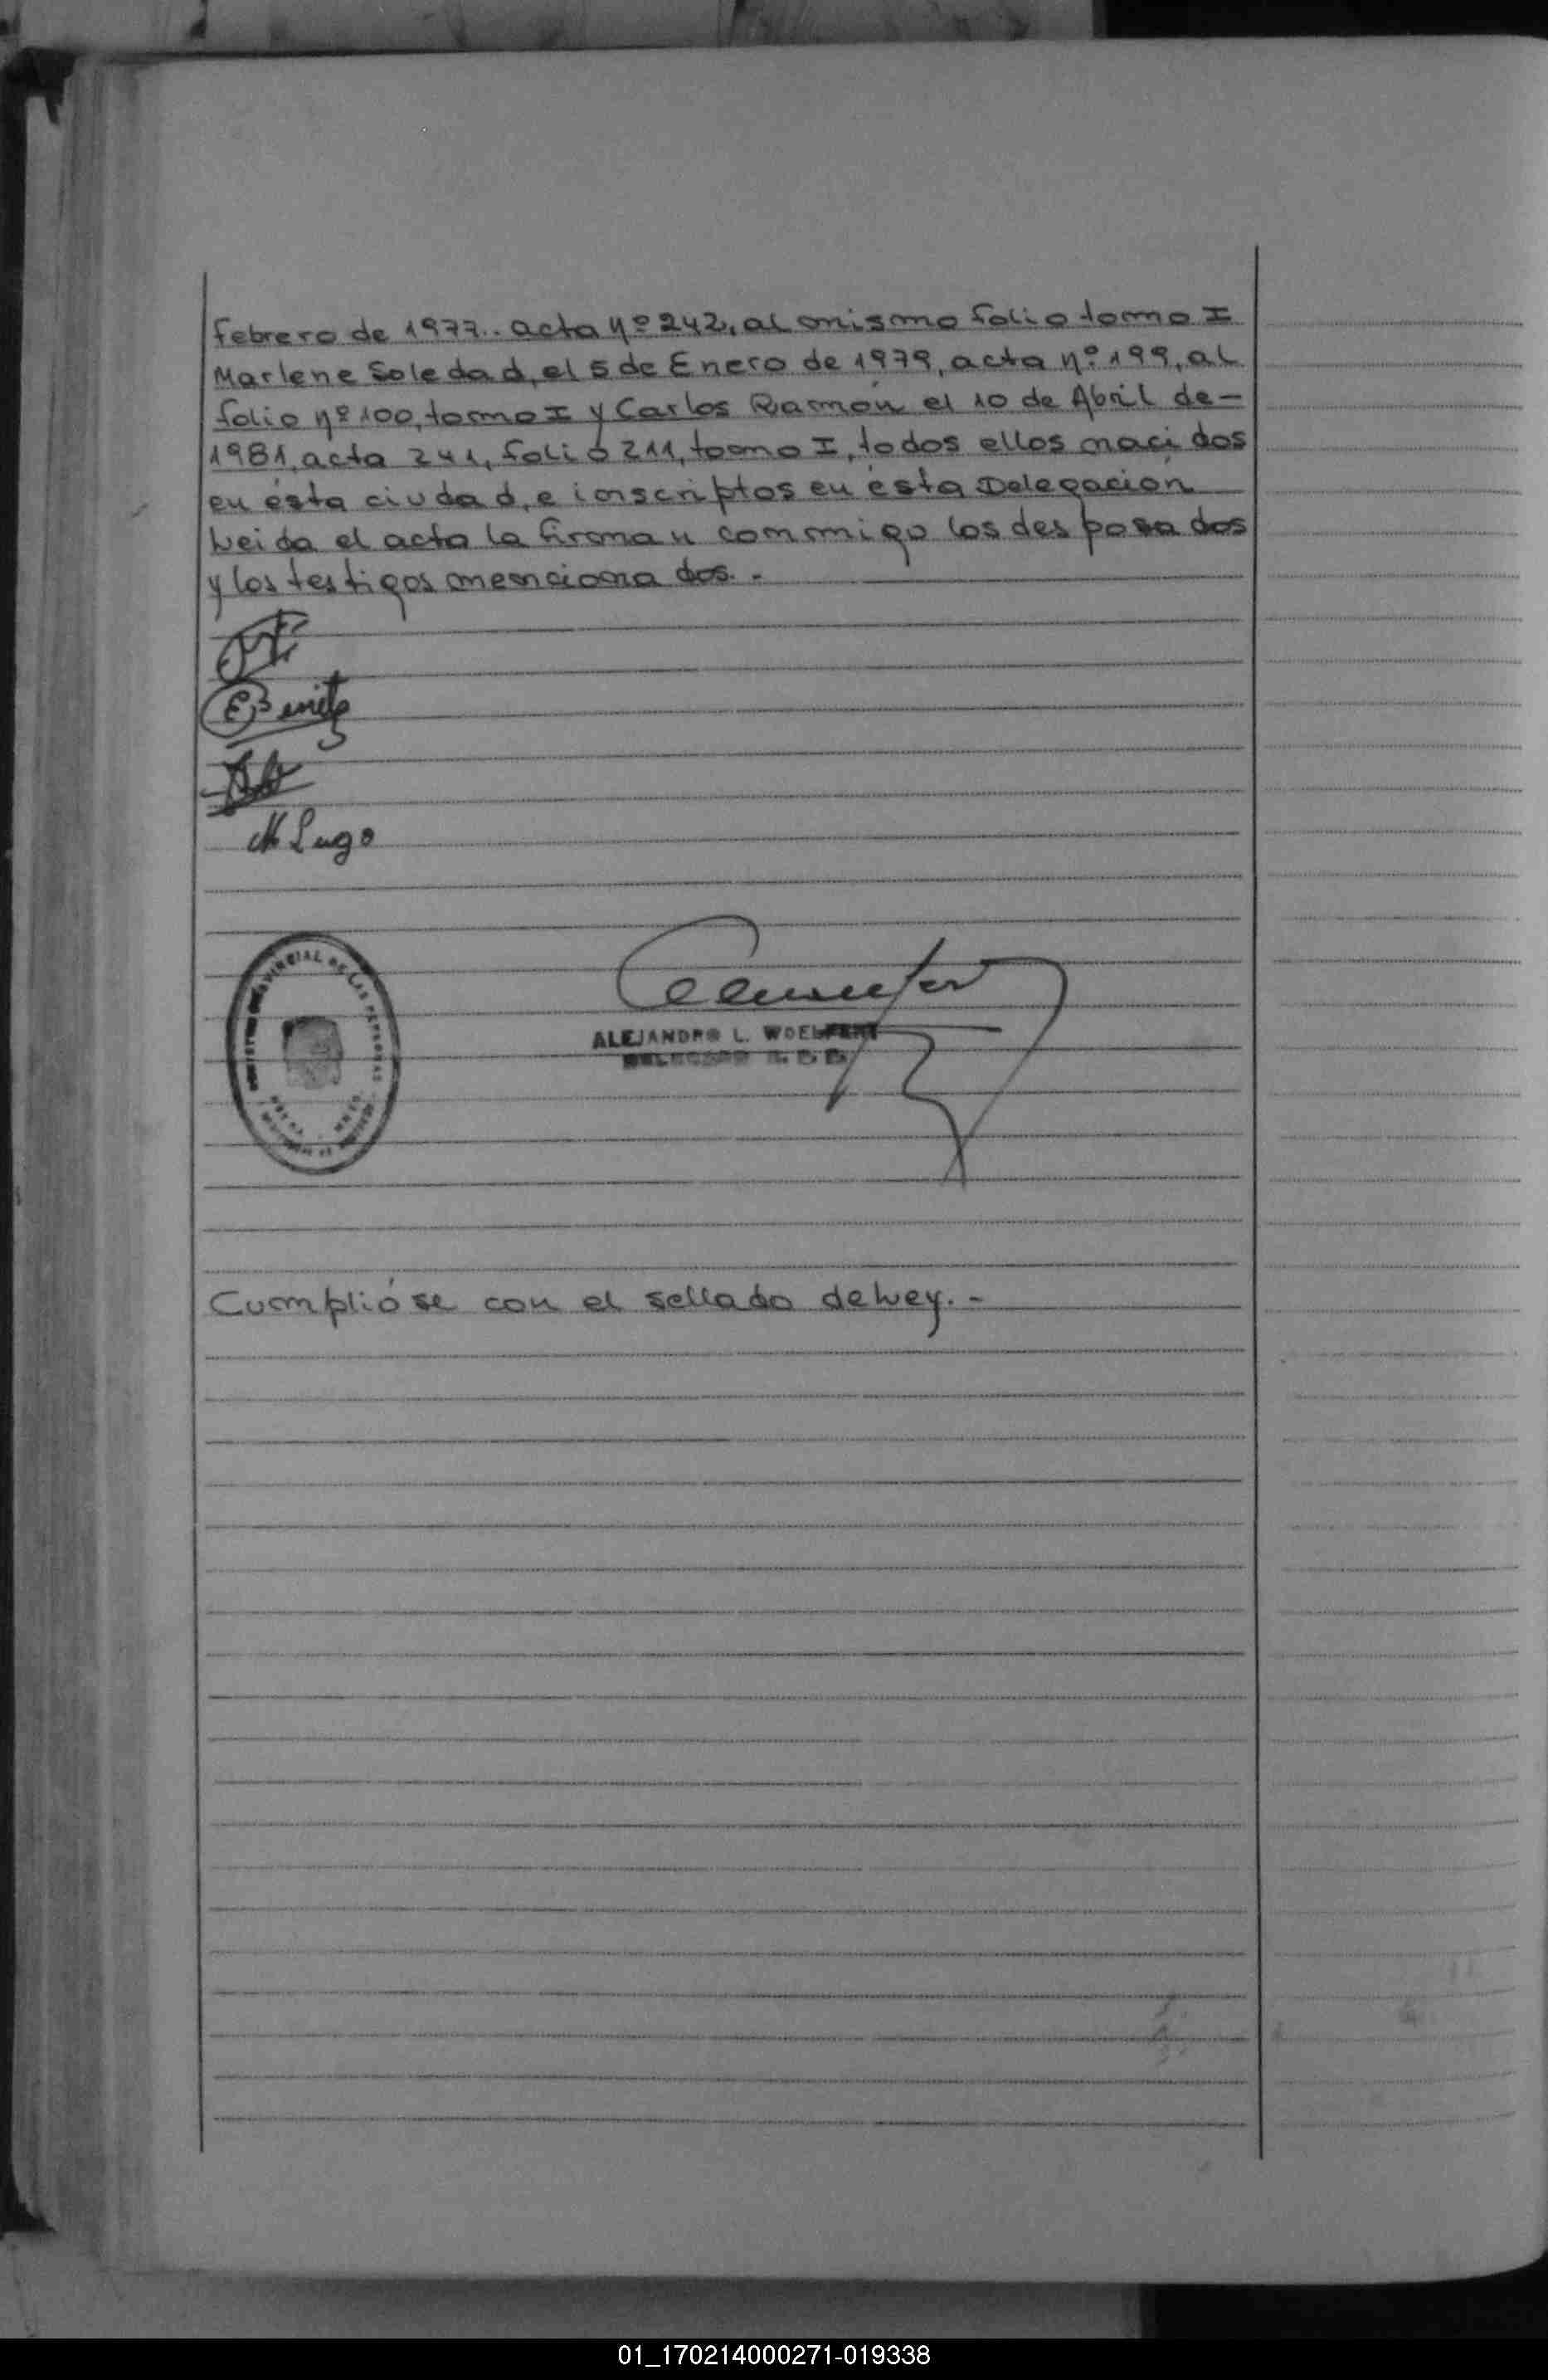 febrero de 1977.. acta nº 242, al mismo folio tomo I
Marlene Soledad, el 5 de Enero de 1979, acta nº 199, al
folio nº 100, tomo I y Carlos Ramón el 10 de Abril de-
1981, acta 241, folio 211, tomo I, todos ellos nacidos
en ésta ciudad, e inscriptos en ésta Delegación
Leida el acta la firman conmigo los desposados
y los testigos mencionados. -
EBenitez
M Lugo
PROVINCIAL DE LAS PERSONAS
ALEJANDRO L. WOELFERT
Cumplióse con el sellado de Ley. -
01_170214000271-019338